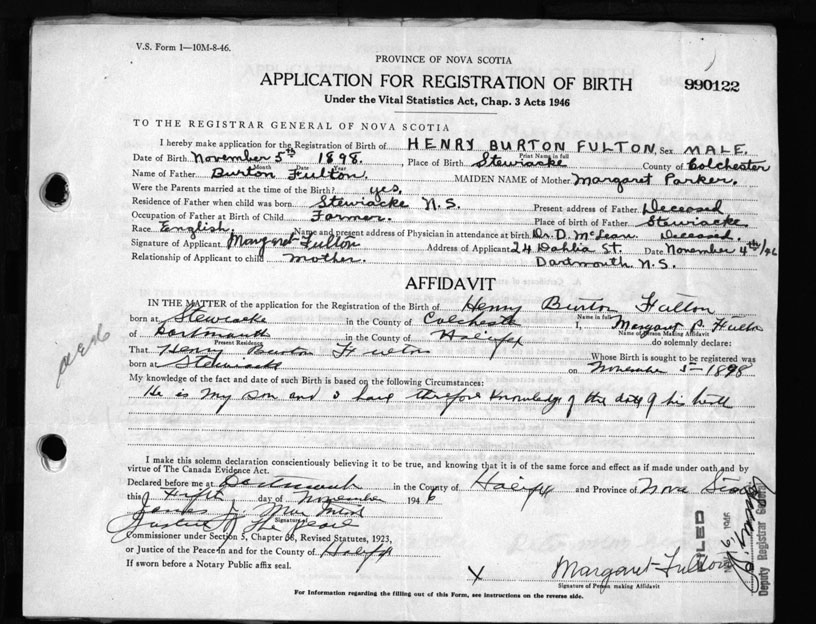 V.S. Form 1—10M-8-46.
PROVINCE OF NOVA SCOTIA
APPLICATION FOR REGISTRATION OF BIRTH 990122
Under the Vital Statistics Act, Chap. 3 Acts 1946
TO THE REGISTRAR GENERAL OF NOVA SCOTIA
I hereby make application for the Registration of Birth of HENRY BURTON FULTON, Sex MALE.
Print Name in full
Date of Birth November 5th 1898. , Place of Birth Stewiacke County of Colchester
Month Date Year
Name of Father Burton Fulton. MAIDEN NAME of Mother Margaret Parker.
Were the Parents married at the time of the Birth? yes,
Residence of Father when child was born Stewiacke N.S. Present address of Father Deceased
Occupation of Father at Birth of Child Farmer. Place of birth of Father Stewiacke
Race English. Name and present address of Physician in attendance at birth Dr. D. McLean Deceased.
Signature of Applicant Margaret Fulton Address of Applicant 24 Dahlia St. Date November 4th/46
Relationship of Applicant to child mother. Dartmouth N.S.
AFFIDAVIT
IN THE MATTER of the application for the Registration of the Birth of Henry Burton Fulton
Name in full
born at Stewiacke in the County of Colchester I, Margaret P. Fulton
Name of Person Making Affidavit
of Dartmouth in the County of Halifax do solemnly declare:
Present Residence
That Henry Burton Fulton Whose Birth is sought to be registered was
born at Stewiacke on November 5- 1898
My knowledge of the fact and date of such Birth is based on the following Circumstances:
He is my son and I have therefore knowledge of the date of his birth
I make this solemn declaration conscientiously believing it to be true, and knowing that it is of the same force and effect as if made under oath and by
virtue of The Canada Evidence Act.
Declared before me at Dartmouth in the County of Halifax and Province of Nova Scotia
this day of November 1946
Signature of
Commissioner under Section 5, Chapter 38, Revised Statutes, 1923,
or Justice of the Peace in and for the County of Halifax
If sworn before a Notary Public affix seal.
X Margaret Fulton
Signature of Person making Affidavit
FILED
Deputy Registrar General
For Information regarding the filling out of this Form, see instructions on the reverse side.